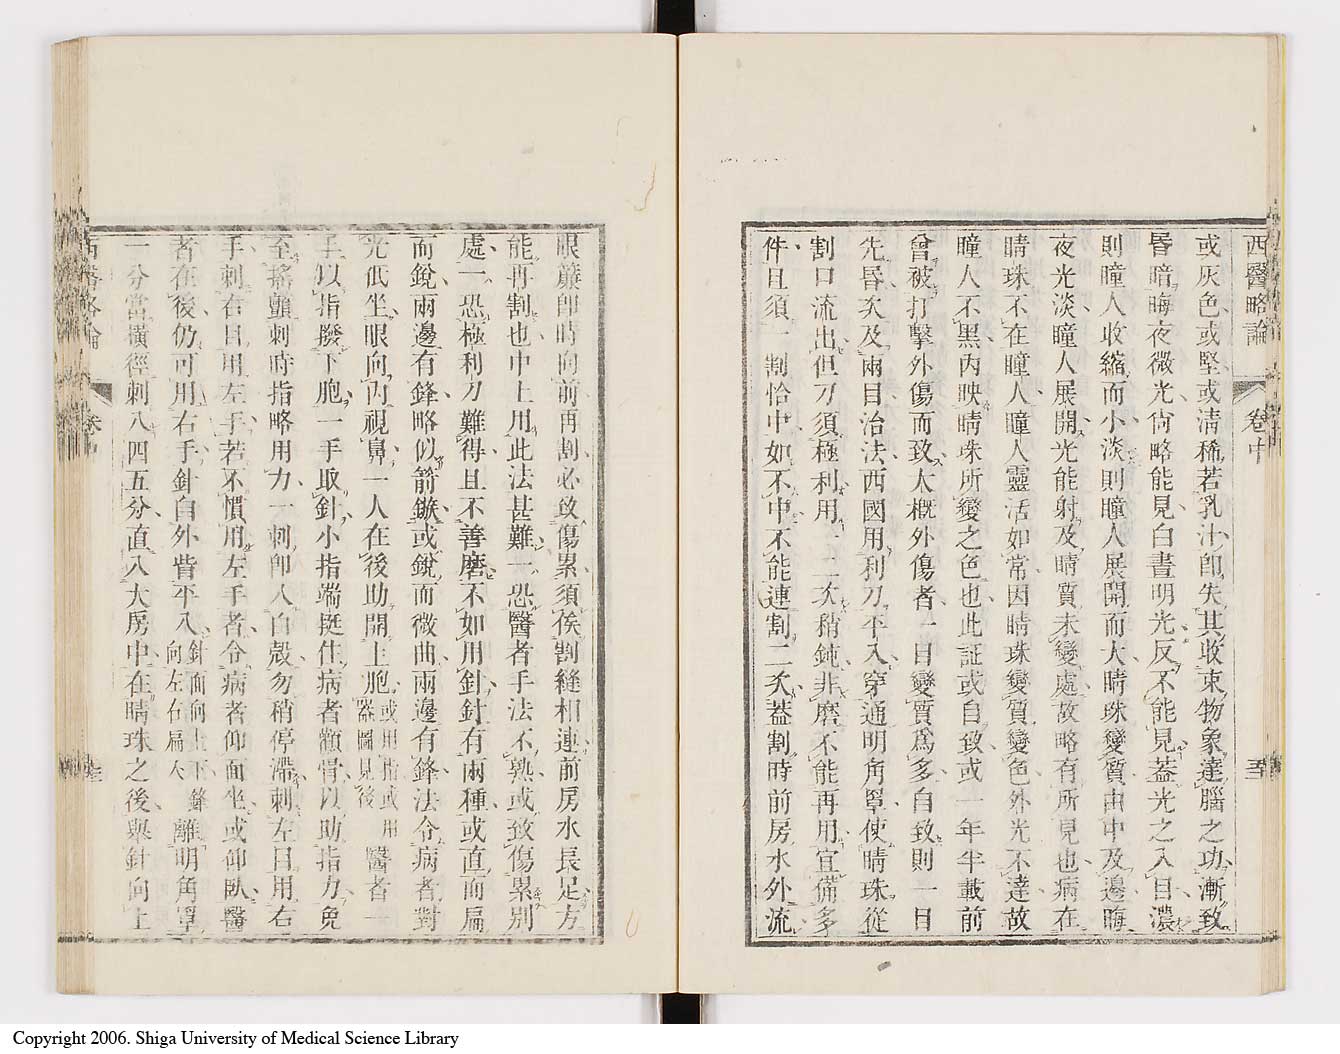 西醫略論 卷中
或灰色或堅或清稀若乳汁卽失其收束物象達腦之功漸致
昏暗晦夜微光尙略能見白晝明光反不能見葢光之入目濃
則瞳人收縮而小淡則瞳人展開而大睛珠變質由中及邊晦
夜光淡瞳人展開光能射及睛質未變處故略有所見也病在
睛珠不在瞳人瞳人靈活如常因睛珠變質變色外光不達故
瞳人不黑內映睛珠所變之色也此証或自致或一年半載前
曾被打擊外傷而致大概外傷者一目變質爲多自致則一目
先昏次及兩目治法西國用利刀平入穿通明角罩使睛珠從
割口流出但刀須極利用一二次稍鈍非磨不能再用宜備多
件且須一割恰中如不中不能連割二次葢割時前房水外流
眼簾卽時向前再割必致傷累須俟割縫相連前房水長足方
能再割也中土用此法甚難一恐醫者手法不熟或致傷累別
處一恐極利刀難得且不善磨不如用針針有兩種或直而扁
而銳兩邊有鋒略似箭鏃或銳而微曲兩邊有鋒法令病者對
光低坐眼向內視鼻一人在後助開上胞或用指或用器圖見後醫者一
手以指撥下胞一手取針小指端挺住病者顴骨以助指力免
至搖顫刺時指略用力一刺卽入白殼勿稍停滯刺左目用右
手刺右目用左手若不慣用左手者令病者仰面坐或仰臥醫
者在後仍可用右手針自外眥平入針面向上下鋒向左右扁大離明角罩
一分當橫徑刺入四五分直入大房中在睛珠之後與針向上
西醫略論 卷中